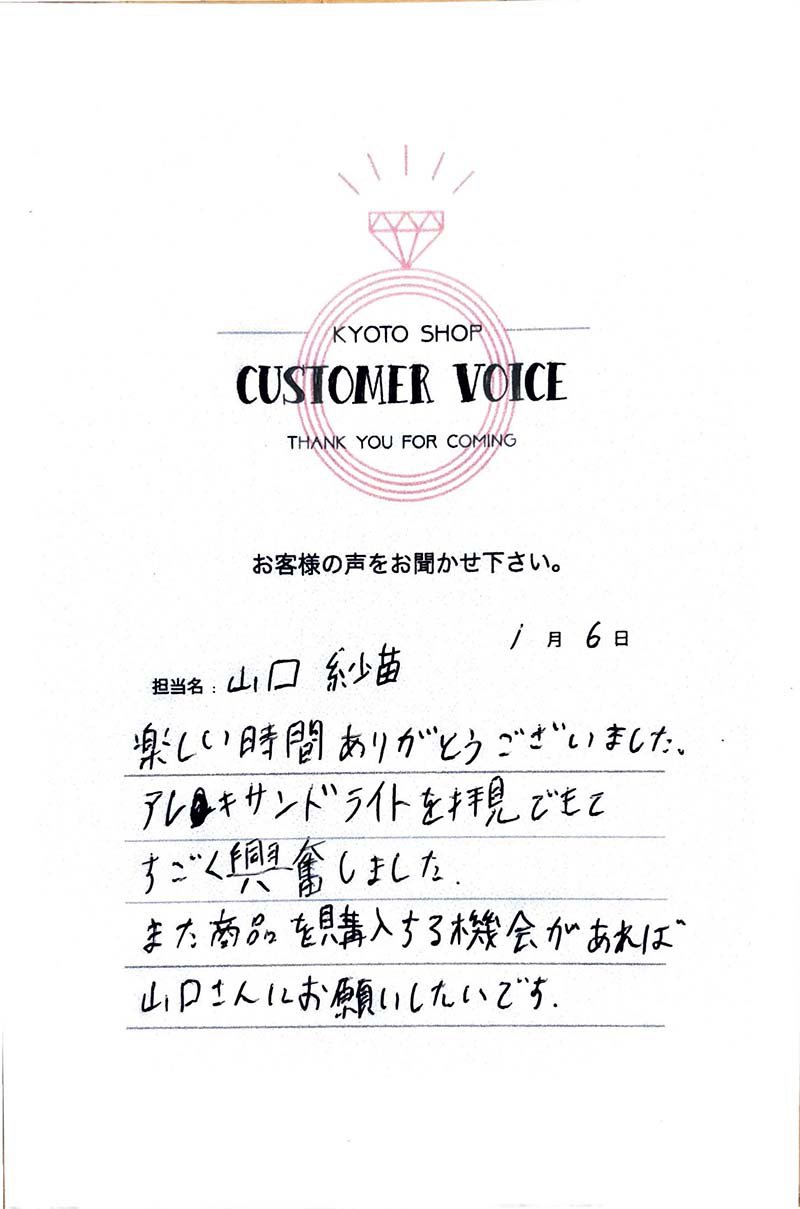 KYOTO SHOP
CUSTOMER VOICE
THANK YOU FOR COMING
お客様の声をお聞かせ下さい。
1月6日
担当名：山口 紗苗
楽しい時間ありがとうございました。
アレキサンドライトを拝見できて
すごく興奮しました.
また商品を購入する機会があれば
山口さんにお願いしたいです.